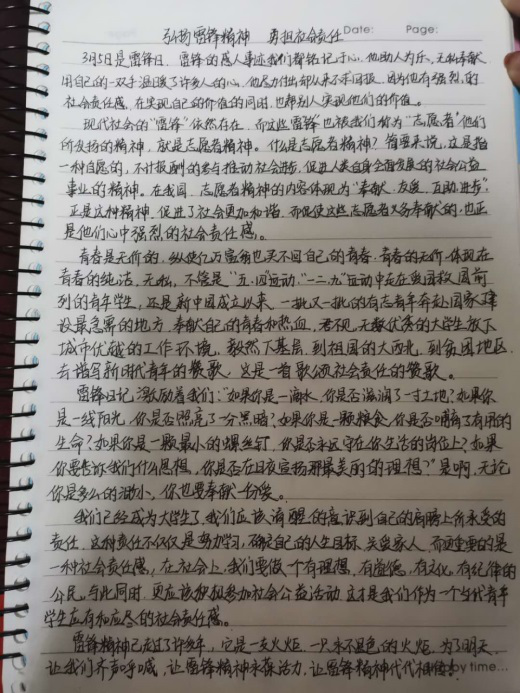 弘扬雷锋精神 勇担社会责任 Date: Page:
3月5日是雷锋日。雷锋的感人事迹我们都铭记于心。他助人为乐、无私奉献
用自己的一双手温暖了许多人的心，他尽力付出却从来不求回报。因为他有强烈的
社会责任感，在实现自己的价值的同时，也帮别人实现他们的价值。
现代社会的"雷锋"依然存在，而这些"雷锋"也被我们称为"志愿者"他们
所发扬的精神，就是志愿者精神。什么是志愿者精神？简要来说，这是指
一种自愿的，不计报酬的参与推动社会进步，促进人类自身全面发展的社会公益
事业的精神。在我国，志愿者精神的内容体现为"奉献、友爱、互助、进步"，
正是这种精神，促进了社会更加和谐，而促使这些志愿者义务奉献的，也正
是他们心中强烈的社会责任感。
青春是无价的，纵使亿万富翁也买不回自己的青春。青春的无价，体现在
青春的纯洁，无私，不管是"五·四"运动，"一二·九"运动中走在救国前
列的青年学生，还是新中国成立以来，一批又一批的有志青年奔赴国家建
设最急需的地方，奉献自己的青春和热血，君不见，无数优秀的大学生放下
城市优越的工作环境，毅然下基层，到祖国的大西北，到贫困地区，
去谱写新时代青年的赞歌，这是一首歌颂社会责任的赞歌。
雷锋日记激励着我们："如果你是一滴水，你是否滋润了一寸土地？如果你
是一线阳光，你是否照亮了一分黑暗？如果你是一颗粮食，你是否哺育了有用的
生命？如果你是一颗最小的螺丝钉，你是否永远守在你生活的岗位上？如果
你要告诉我们什么思想，你是否在日夜宣扬那最美丽的理想？"是啊，无论
你是多么的渺小，你也要奉献一份爱。
我们已经成为大学生了，我们应该清醒的意识到自己的肩膀上所承受的
责任，这种责任不仅仅是努力学习，确定自己的人生目标，关爱家人，而更重要的是
一种社会责任感，在社会上，我们要做一个有理想，有道德，有文化，有纪律的
公民，与此同时，更应该积极参加社会公益活动，这才是我们作为一个当代青年
学生应有和应尽的社会责任感。
雷锋精神已走过了许多年，它是一支火炬，一只永不褪色的火炬，为了明天，
让我们齐声呼喊，让雷锋精神永葆活力，让雷锋精神代代相传！ time...